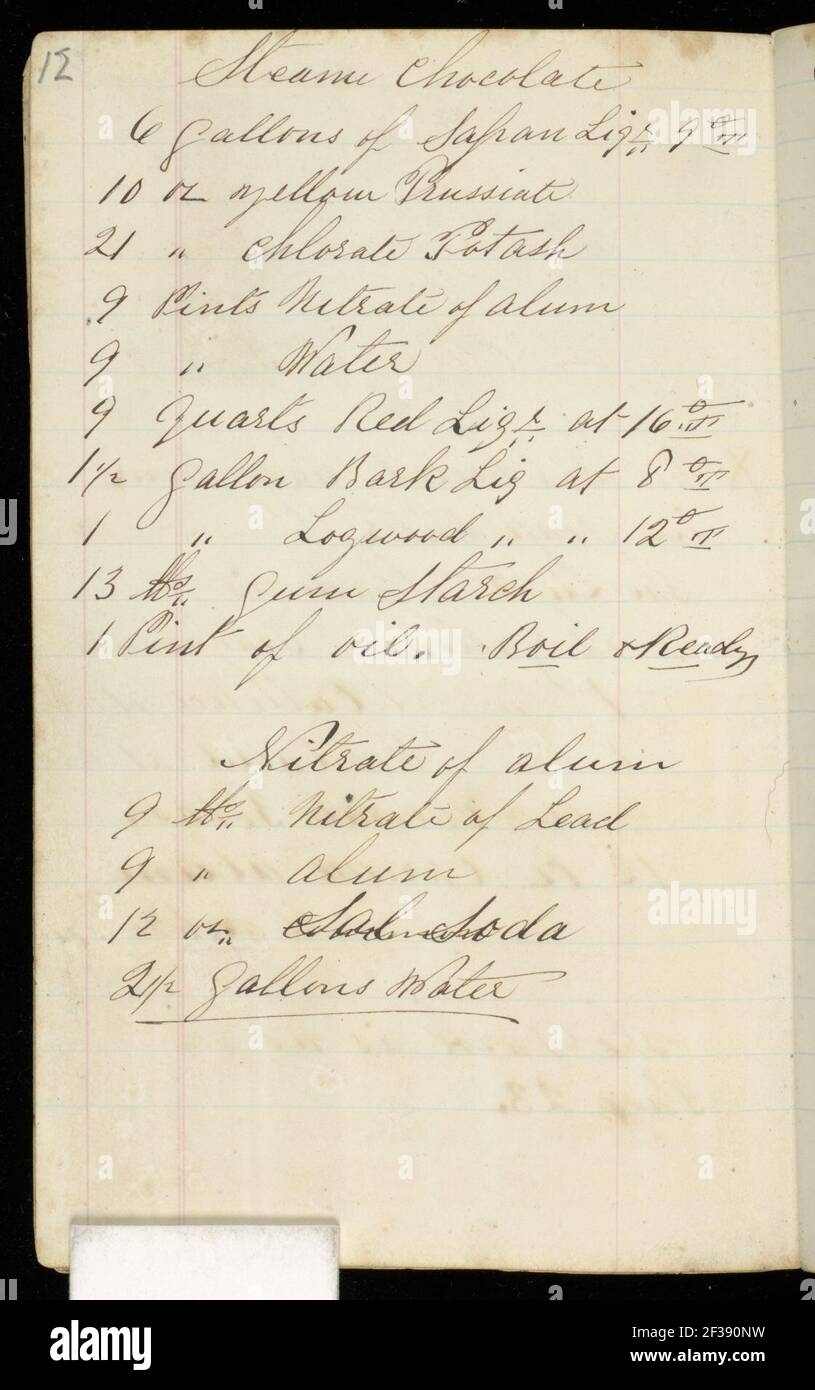 12
Steame Chocolate
6 Gallons of Sapan Liqr 9° T
10 oz Yellow Prussiate
21 " Chlorate Potash
9 Pints Nitrate of alum
9 " Water
9 Quarts Red Liqr at 16° T
1 1/2 Gallon Bark Liq at 8° T
1 " Logwood " " 12° T
13 lbs Gum Starch
1 Pint of oil. Boil & Ready
Nitrate of alum
9 lbs Nitrate of Lead
9 " alum
12 oz Sal Soda
2 1/2 Gallons Water
alamy
Image ID: 2F390NW
www.alamy.com